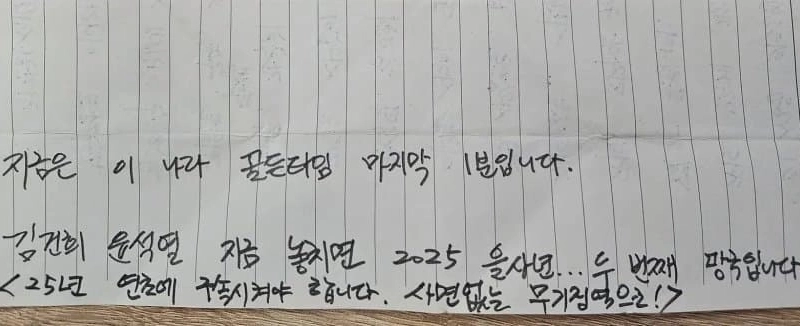 지금은 이 나라 골든타임 마지막 1분입니다.
김건희 윤석열 지금 놓치면 2025 을사년... 두 번째 망국입니다
<25년 연초에 구속시켜야 합니다. 사면없는 무기징역으로!>